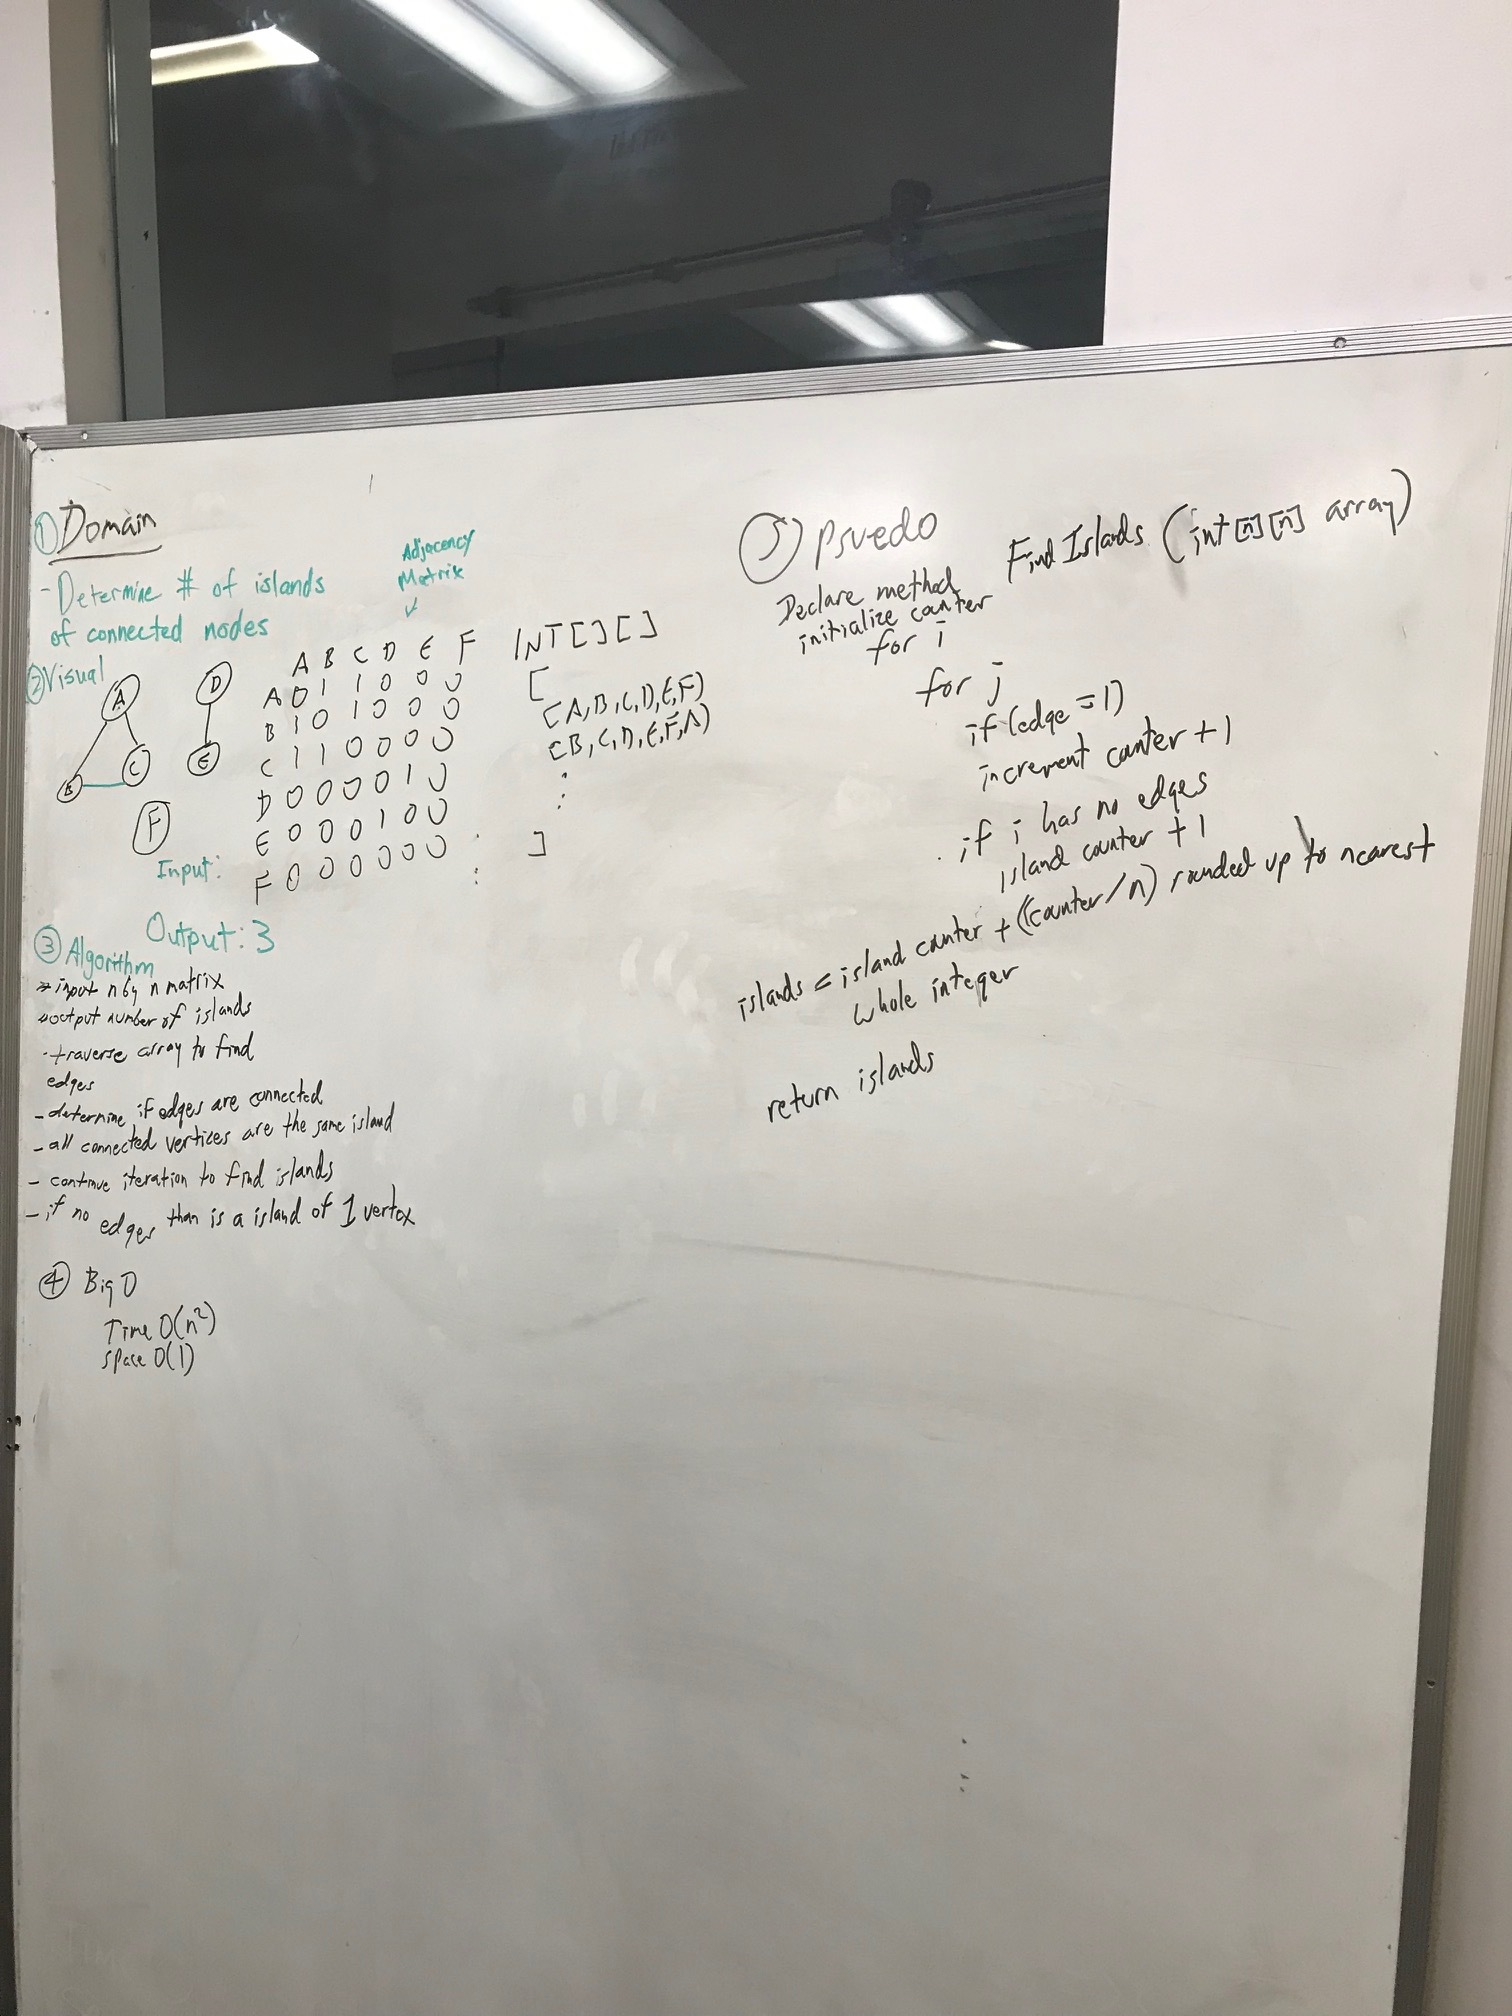 ① Domain
- Determine # of islands
of connected nodes
② Visual
A
B
C
D
E
F
Input:
Adjacency
Matrix
A B C D E F
A 0 1 1 0 0 0
B 1 0 1 0 0 0
C 1 1 0 0 0 0
D 0 0 0 0 1 0
E 0 0 0 1 0 0
F 0 0 0 0 0 0
INT [ ] [ ]
[
[A, B, C, D, E, F)
[B, C, D, E, F, A)
]
Output: 3
③ Algorithm
input n by n matrix
output number of islands
- traverse array to find
edges
- determine if edges are connected
- all connected vertices are the same island
- continue iteration to find islands
- if no edges than is a island of 1 vertex
④ Big O
Time O(n²)
space O(1)
⑤ Psuedo
Declare method Find Islands (int[n][n] array)
initialize counter
for i
for j
if (edge = 1)
increment counter + 1
if i has no edges
island counter + 1
islands = island counter + ((counter/n) rounded up to nearest
whole integer
return islands